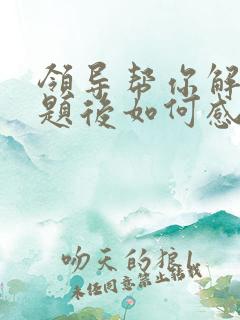 領导帮你解
题後如何感
吻天的狼l
未经同意禁止转载